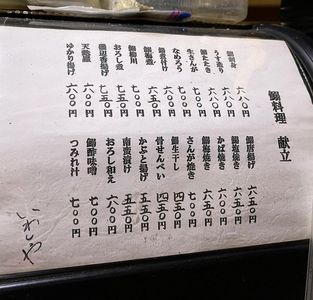 鰯料理 献立
鰯刺身 六八〇円
うす造り 六八〇円
鰯たたき 六八〇円
生さんが 七〇〇円
なめろう 七〇〇円
鰯煮付け 七〇〇円
鰯梅煮 七〇〇円
鰯柳川 七五〇円
おろし煮 七五〇円
磯辺香揚げ 七五〇円
天ぷら 六〇〇円
ゆかり揚げ 六〇〇円
鰯唐揚げ 六五〇円
鰯塩焼き 六五〇円
かば焼き 六八〇円
鰯梅焼き 六五〇円
さんが焼き 七〇〇円
鰯生干し 四五〇円
骨せんべい 四五〇円
かぶと揚げ 五五〇円
南蛮漬け 五五〇円
おろし和え 六〇〇円
鰯酢味噌 七〇〇円
つみれ汁 七〇〇円
いわしや